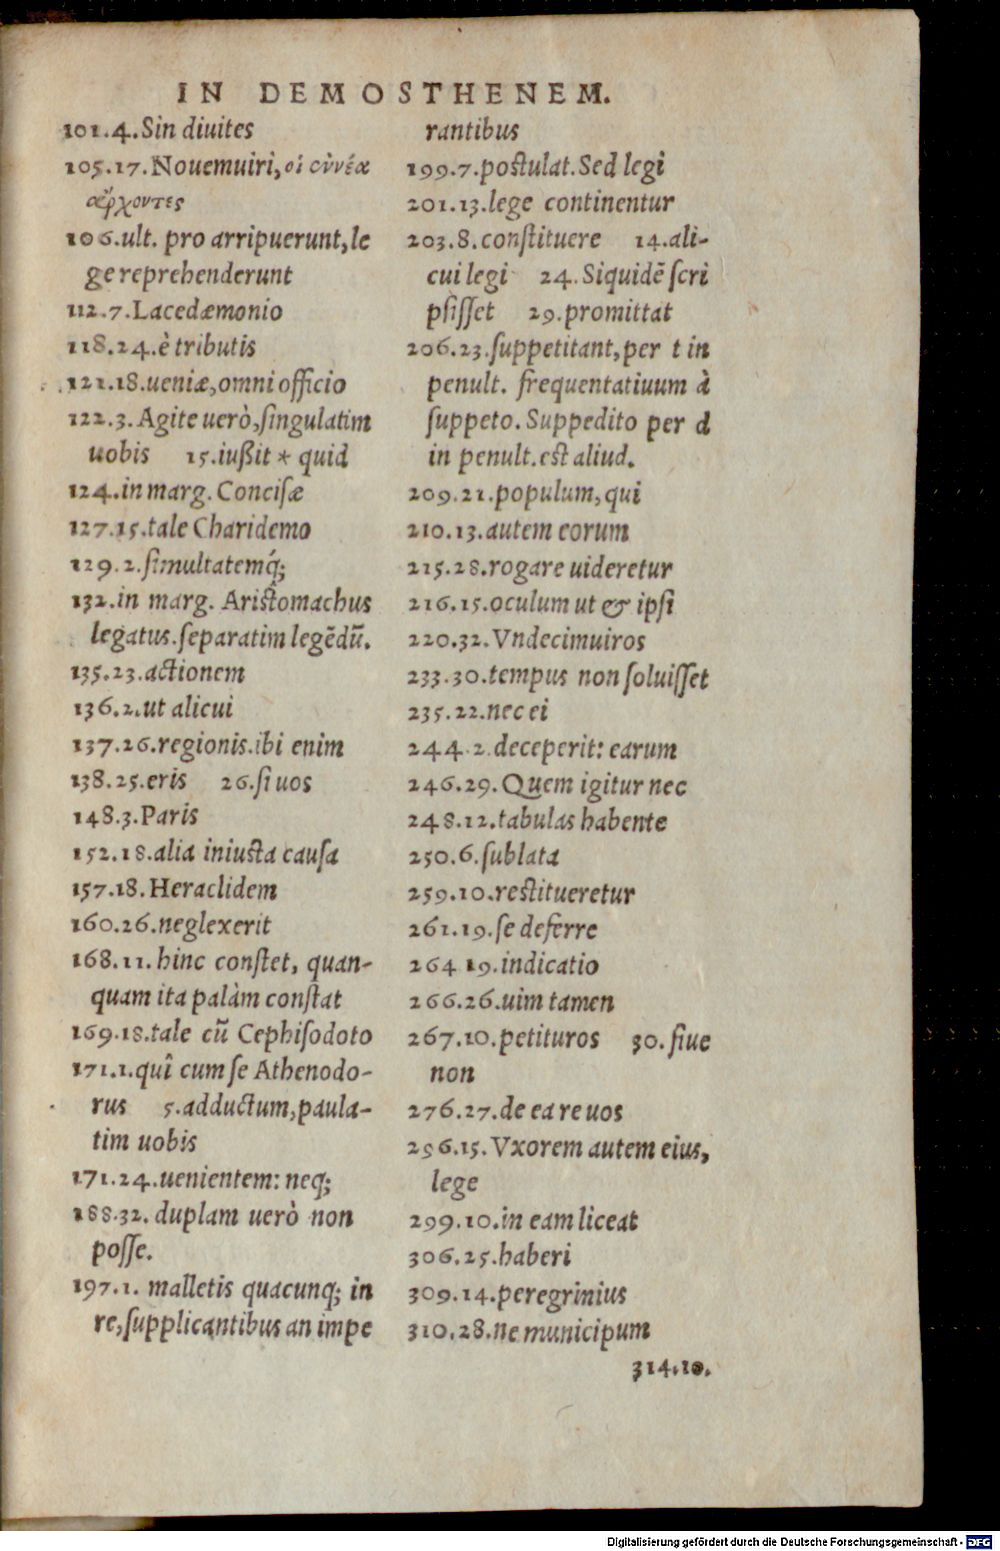 IN DEMOSTHENEM.
101.4.Sin diuites
105.17.Nouemuiri, οἱ ἐννέα
ἄρχοντες
106.ult. pro arripuerunt, le
ge reprehenderunt
112.7.Lacedæmonio
118.24.è tributis
121.18.ueniæ, omni officio
122.3.Agite uerò, singulatim
uobis 15.iußit * quid
124.in marg. Concisæ
127.15.tale Charidemo
129.2.simultatemq́;
132.in marg. Aristomachus
legatus.separatim legẽdũ.
135.23.actionem
136.2.ut alicui
137.26.regionis.ibi enim
138.25.eris 26.si uos
148.3.Paris
152.18.alia iniusta causa
157.18.Heraclidem
160.26.neglexerit
168.11.hinc constet, quan-
quam ita palàm constat
169.18.tale cũ Cephisodoto
171.1.quî cum se Athenodo-
rus 5.adductum, paula-
tim uobis
171.24.uenientem: neq;
188.32. duplam uerò non
posse.
197.1. malletis quacunq; in
re, supplicantibus an impe
rantibus
199.7.postulat. Sed legi
201.13.lege continentur
203.8.constituere 14.ali-
cui legi 24.Siquidẽ scri
psisset 29.promittat
206.23.suppetitant, per t in
penult. frequentatiuum à
suppeto. Suppedito per d
in penult.est aliud.
209.21.populum, qui
210.13.autem eorum
215.28.rogare uideretur
216.15.oculum ut & ipsi
220.32.Vndecimuiros
233.30.tempus non soluisset
235.22.nec ei
244.2.deceperit: earum
246.29.Quem igitur nec
248.12.tabulas habente
250.6.sublata
259.10.restitueretur
261.19.se deferre
264 19.indicatio
266.26.uim tamen
267.10.petituros 30.siue
non
276.27.de ea re uos
296.15.Vxorem autem eius,
lege
299.10.in eam liceat
306.25.haberi
309.14.peregrinius
310.28.ne municipum
314.10.
Digitalisierung gefördert durch die Deutsche Forschungsgemeinschaft - DFG